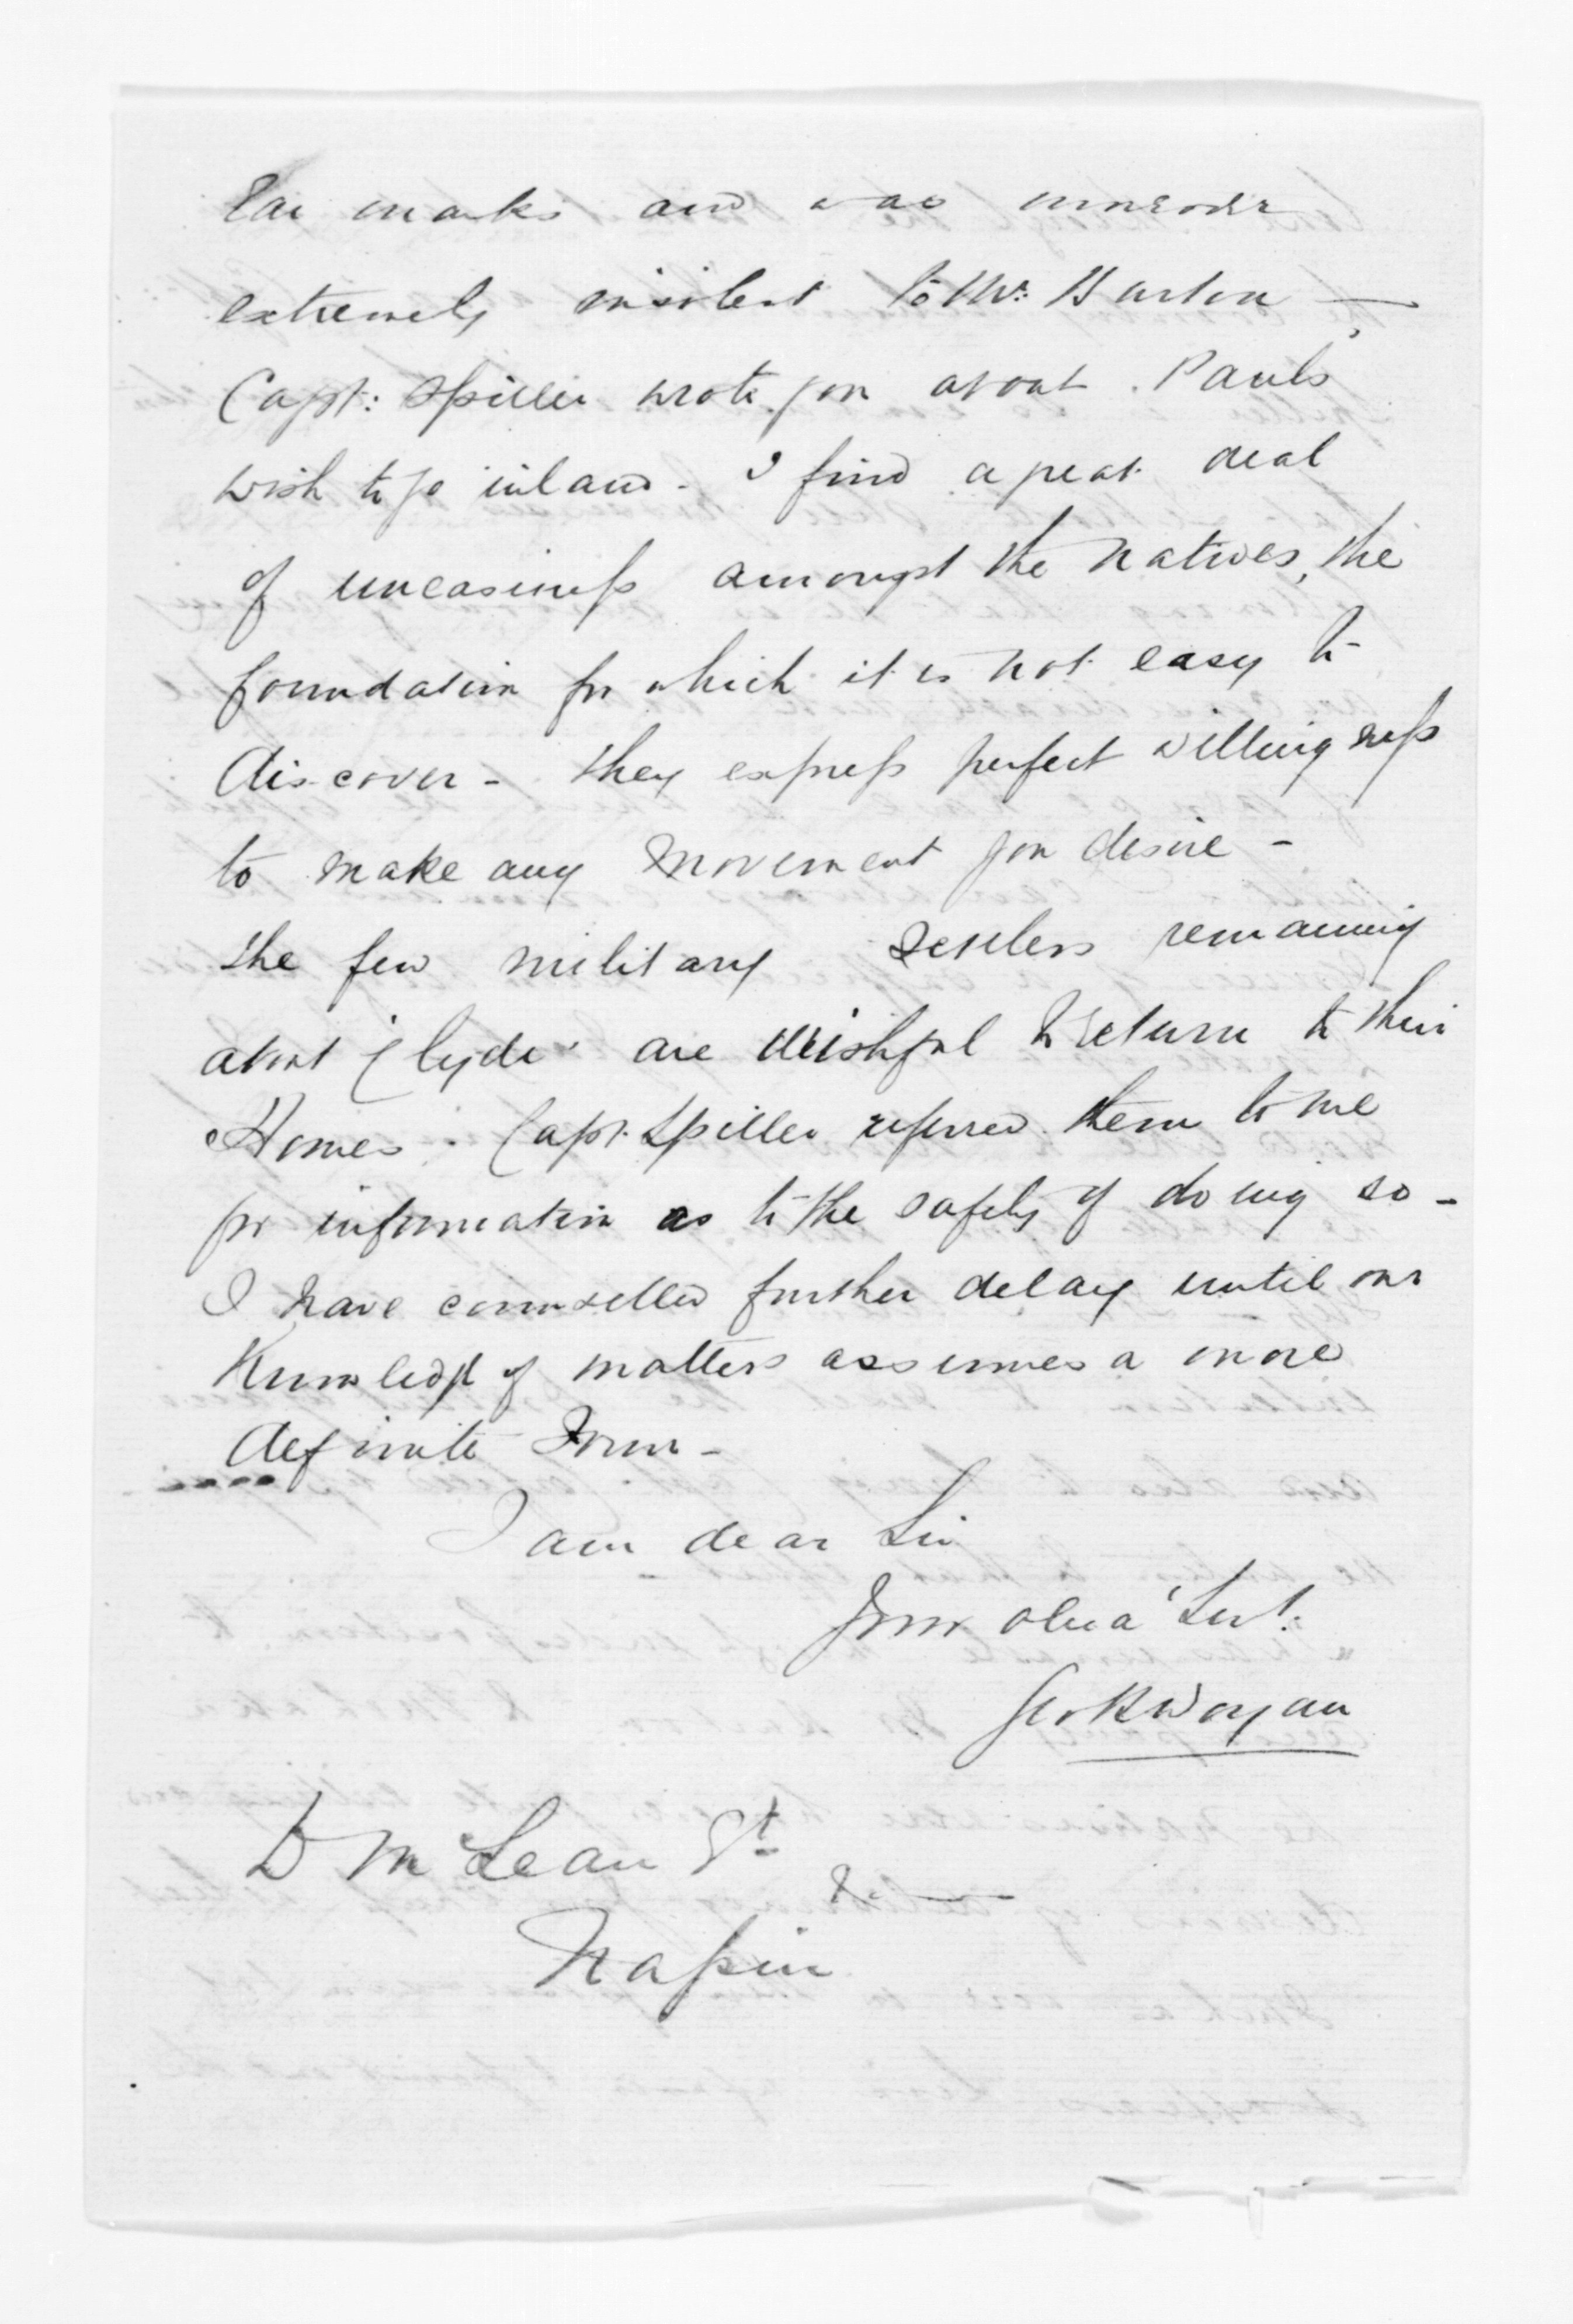 Ear marks and was moreover
extremely insolent to Mr: Burton —
Capt: Spiller wrote you about Pauls
wish to go inland - I find a great deal
of uneasiness amongst the natives, the
foundation for which it is not easy to
discover - they express perfect willingness
to make any movement you desire -
the few military settlers remaining
about Clyde are wishful to return to their
Homes. Capt. Spiller referred them to me
for information as to the safety of doing so -
I have counselled further delay until our
Knowledge of matters assumes a more
definite Form -
I am dear Sir
Your obed Servt:
D McLean
&c
Napier